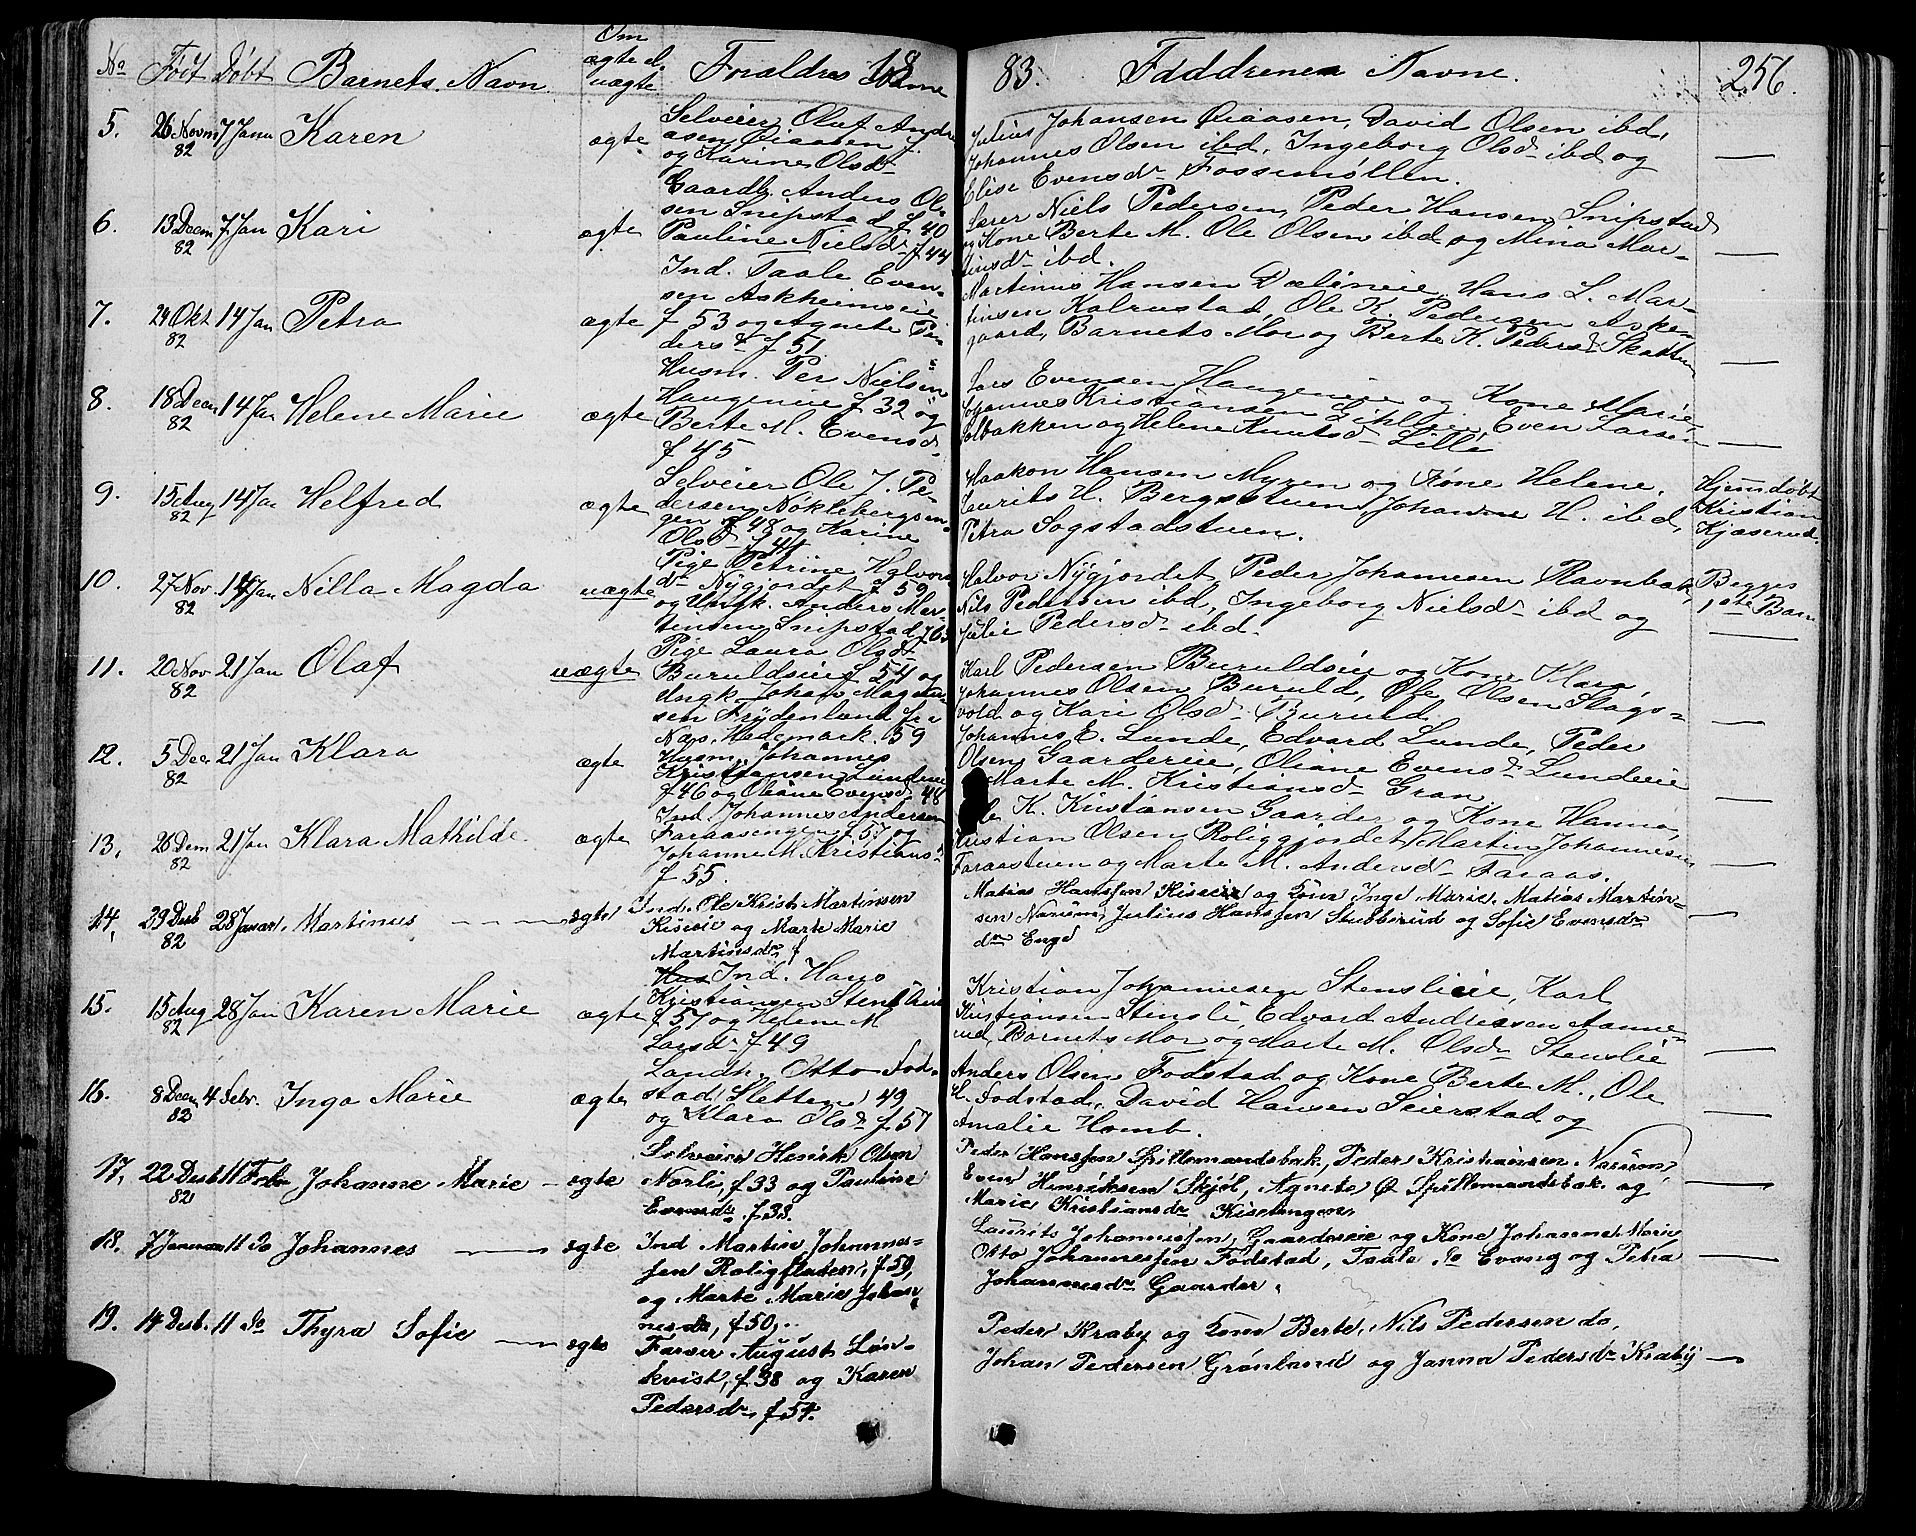 No Født Døbt Barnets Navn Om ægte el. uægte Foraldres Navne 18
83. Faddrenes Navne. 256.
5. 26 Novm 82 7 Janu Karen ægte
Selveier Olaf Andre-
asen Øiaasen f.
og Karine Olsdr
Julius Johansen Øiaasen, David Olsen ibd,
Johannes Olsen ibd, Ingeborg Olsdr ibd og
Elise Evensdr Fossemøllen.
6. 13 Decm 82 7 Jan Kari ægte
Gaardb. Anders Ol-
sen Snipstad f 40
Pauline Nielsdr f 44
Lærer Niels Pedersen, Peder Hansen Snipstad
og Kone Berte M. Ole Olsen ibd og Mina Mar-
tinsdr ibd.
7. 29 Okt 82 14 Jan Petra ægte
Ind. Taale Even-
sen Askheimseie
f 53 og Agnete Pe-
dersdr f 51
Martinus Hansen Dælineie, Hans L. Mar-
tinsen Kalrustad, Ole K. Pedersen Aske-
gaard, Barnets Mor og Berte K. Pedersd Skattum
8. 18 Decm 82 14 Jan Helene Marie ægte
Husm. Per Nielsen
Haugeneie f 32 og
Berte M. Evensdr
f 45
Lars Evensen Haugeneie og Kone Marie
Johannes Kristiansen Even Larsen
Solbakken og Helene Knutsdr Lille
9. 15 Aug 82 14 Jan Helfred ægte
Selveier Ole J. Pe-
dersen Nøklebergsen-
gen f 48 og Karine
Olsdr f 44
Haakon Hansen Myren og Kone Helene,
Laurits H. Bergsstuen, Johanne H. ibd,
Petra Sogstadstuen.
Hjemdøbt
Kristian
Kjæserud.
10. 27 Nov 82 14 Jan Nilla Magda uægte
Pige Petrine Halvors
dr Nygjordet f 59
og Ungk. Anders Mor-
tensen Snipstad f 63
Halvor Nygjordet, Peder Johannesen Ravnbak,
Nils Pedersen ibd, Ingeborg Nielsdr ibd og
Julie Pedersdr ibd.
Begges
1ste Barn
11. 20 Nov 82 21 Jan Olaf uægte
Pige Laura Olsdr
Buruldseie f 54 og
Ungk. Johans Magnus-
sen Frydenlund fra
Næs, Hedemark. 59
Karl Pedersen Buruldseie og Kone Klara,
Johannes Olsen Buruld, Ole Olsen Slags-
vold og Kari Olsdr Buruld
12. 5 Dec 82 21 Jan Klara ægte
Husm. Johannes
Kristiansen Lundeeie
f 46 og Oliane Evensdr 48
Johannes E. Lunde, Edvard Lunde, Peder
Olsen Gaardereie, Oliane Evensdr Lundeeie
Marte M. Kristiansdr Gran
13. 26 Decm 82 21 Jan Klara Mathilde ægte
Ind. Johannes Andersen
Faraasengen f 57 og
Johanne M. Kristiansdr
f 55.
Ole K. Kristiansen Gaarder og Kone Hanna,
Kristian Olsen Roligjordet, Martin Johannesen
Faraastuen og Marte M. Andersdr Faraas.
14. 29 Desb 82 28 Januar. Martinus ægte
Ind. Ole Krist. Martinsen
Kiseeie og Marte Marie
Martinsdr f
Matias Hanssen Kiseeie og Kone Inge Marie, Matias Martin-
sen Narum, Julius Hanssen Stubberud og Sofie Evensdr
dn Enge
15. 15 Aug 82 28 Jan Karen Marie ægte
Hus Ind. Hans
Kristiansen Stenslieie
f 57 og Helene M
Larsdr f 49
Kristian Johannesen Stenslieie, Karl
Kristiansen Stensli, Edvard Andreasen Aanne-
rud, Barnets Mor og Marte M. Olsdr Stenslie
16. 8 Decm 82 4 Febr. Inga Marie ægte
Landh. Otto Fod-
stad Sletten 49
og Klara Olsdr f 57
Anders Olsen Fodstad og Kone Berte M., Ole
H. Fodstad, David Hansen Seierstad og
Amalie Homb.
17. 22 Desb 82 11 Febr Johanne Marie ægte
Selveier Henrik Olsen
Norli, f 33 og Pauline
Evensdr, f 38.
Peder Hanssen Spillemandsbek, Peder Kristiansen Narum,
Even Henriksen Skjöl, Agnete Ø Spillemandsbak. og
Marie Kristiansdr Kiseengen.
18. 7 Januar 11 Do Johannes ægte
Ind Martin Johannes-
sen Roligflaten, f 59,
og Marte Marie Johan-
nesdr, f 50.
Laurits Johannessen, Gaardereie og Kone Johanne Marie
Otto Johannessen Fodstad, Taale Do Evang og Petra
Johannesdr Gaarder.
19. 14 Desb. 11 Do Thyra Sofie ægte
Farver August Løn-
kvist, f 38 og Karen
Pedersdr, f 54.
Peder Kraby og Kone Berte, Nils Pedersen do,
Johan Pedersen Grønland og Janna Pedersdr Kraby